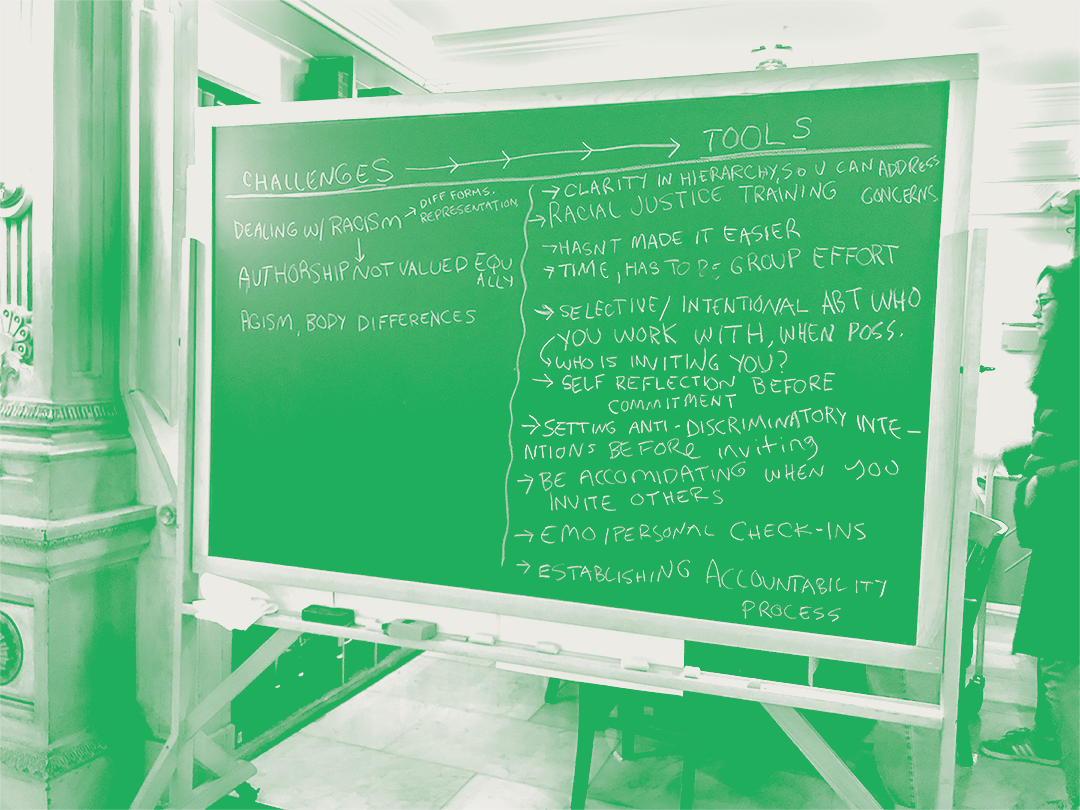 CHALLENGES
TOOLS
DEALING W/ RACISM → DIFF FORMS.
REPRESENTATION
AUTHORSHIP NOT VALUED EQU
ALLY
AGISM, BODY DIFFERENCES
→ CLARITY IN HIERARCHY, SO U CAN ADDRESS
CONCERNS
→ RACIAL JUSTICE TRAINING
→ HASNT MADE IT EASIER
→ TIME, HAS TO BE GROUP EFFORT
→ SELECTIVE/ INTENTIONAL ABT WHO
YOU WORK WITH, WHEN POSS.
WHO IS INVITING YOU?
→ SELF REFLECTION BEFORE
COMMITMENT
→ SETTING ANTI-DISCRIMINATORY INTE-
NTIONS BEFORE inviting
→ BE ACCOMIDATING WHEN YOU
INVITE OTHERS
→ EMO/PERSONAL CHECK-INS
→ ESTABLISHING ACCOUNTABILITY
PROCESS